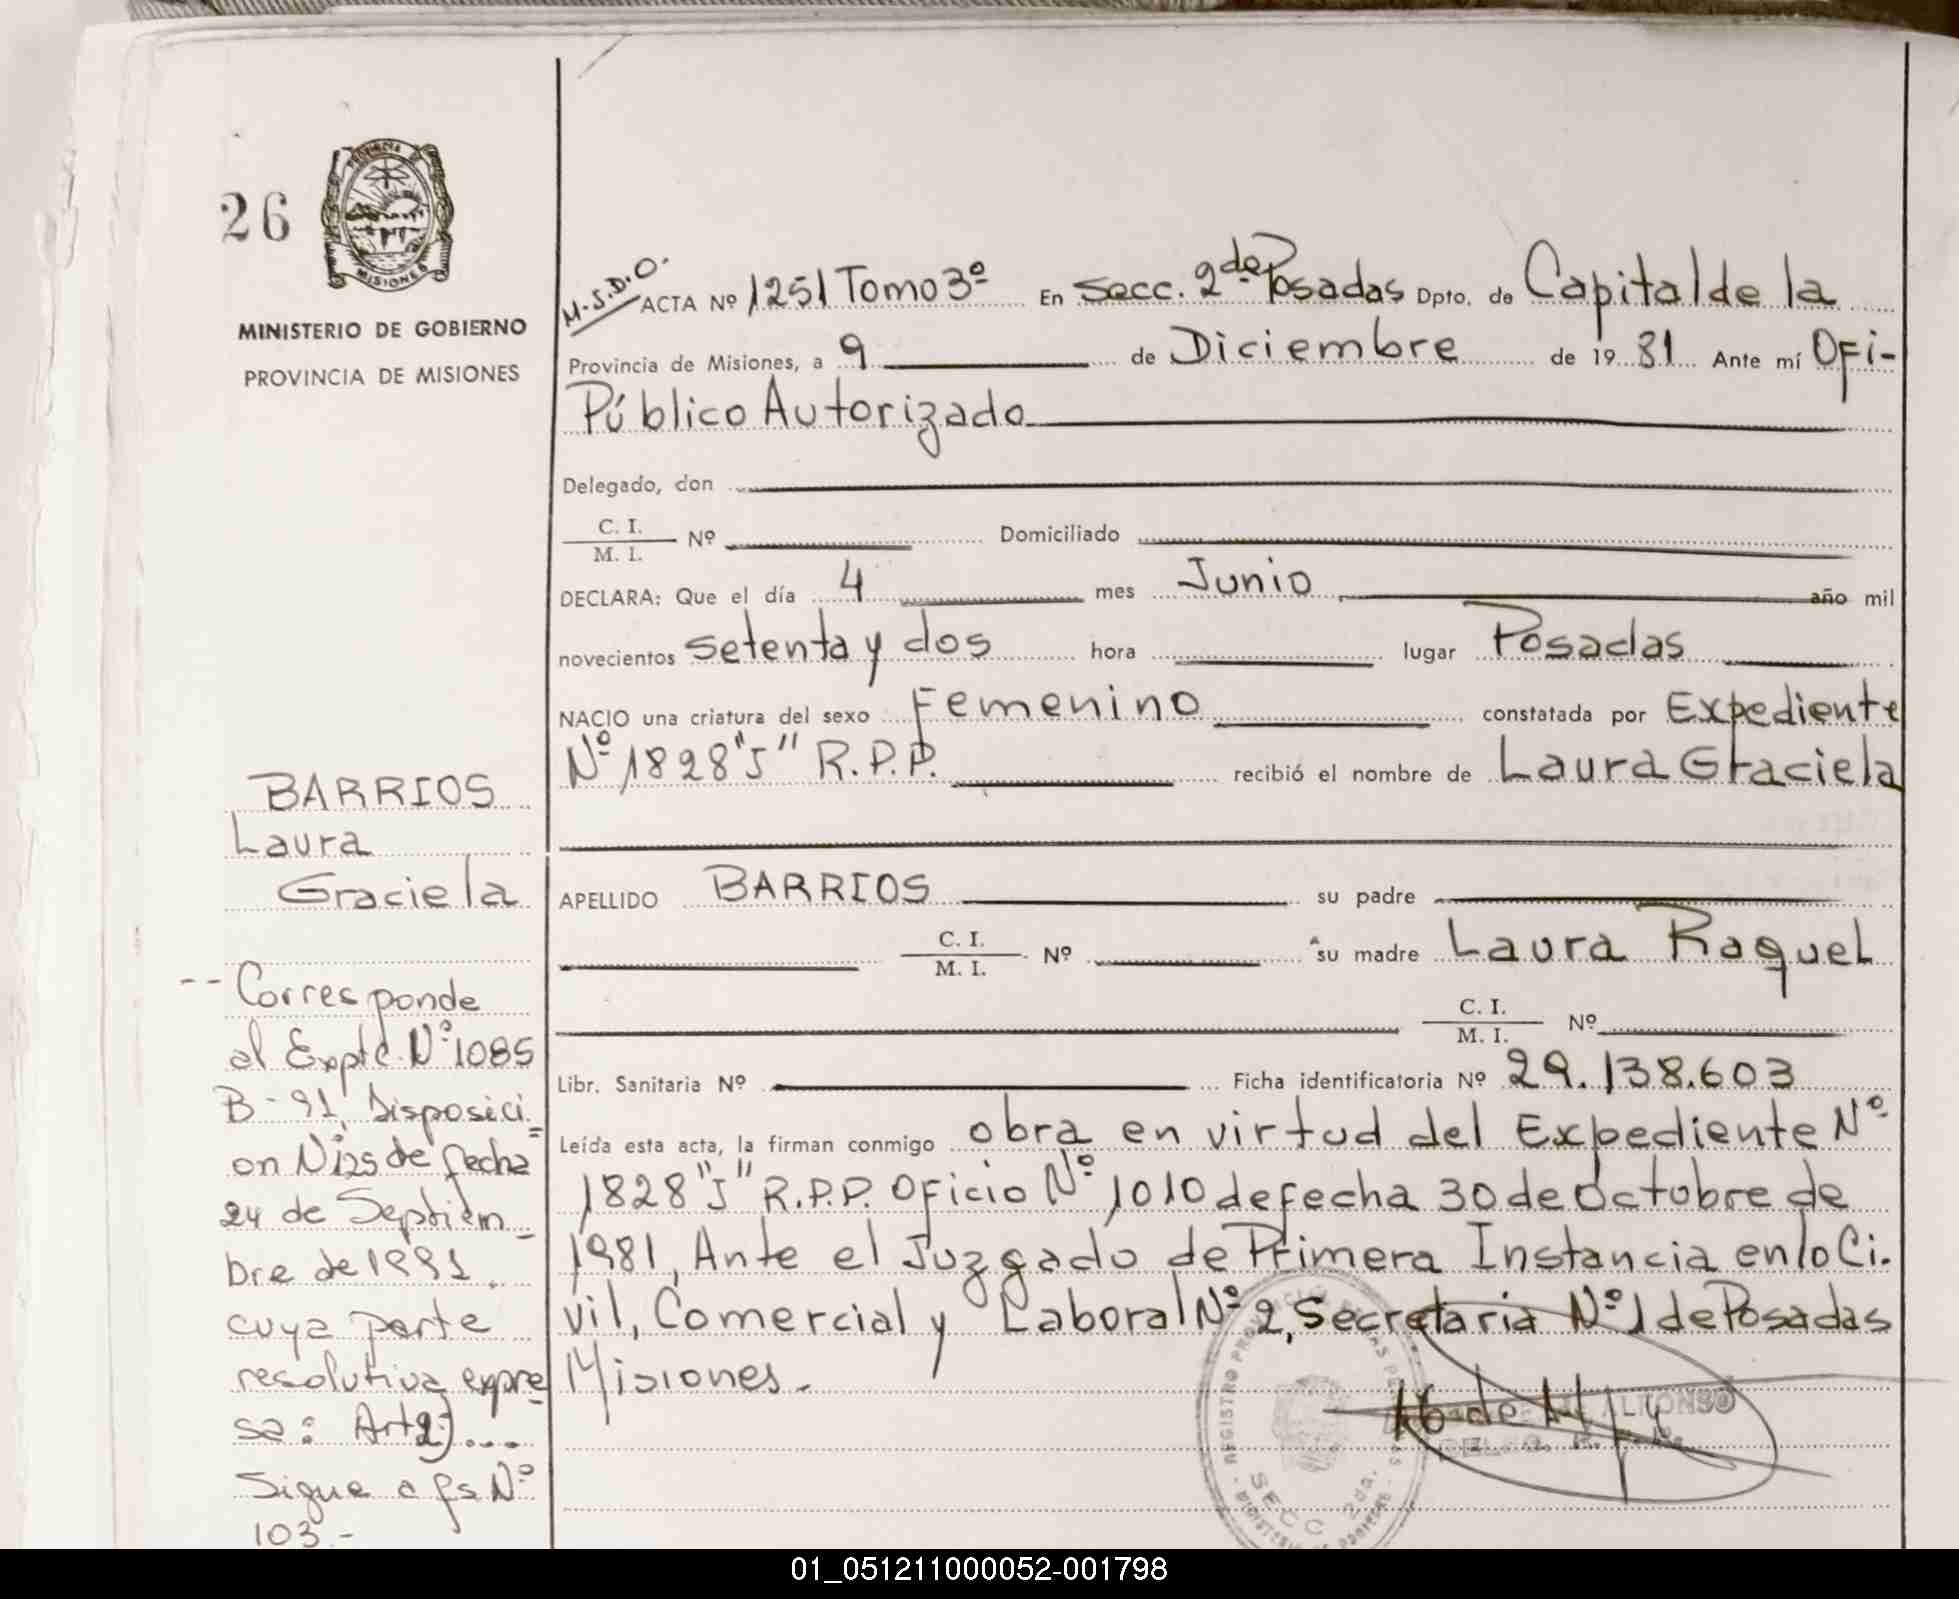 26
PROVINCIA DE
MISIONES
MINISTERIO DE GOBIERNO
PROVINCIA DE MISIONES
M.S.D.O.
ACTA Nº 1251 Tomo 3º En secc. 2da de Posadas Dpto. de Capital de la
Provincia de Misiones, a 9 de Diciembre de 19 81 Ante mí Ofi-
Público Autorizado
Delegado, don
C. I.
M. I. Nº Domiciliado
DECLARA: Que el día 4 mes Junio año mil
novecientos setenta y dos hora lugar Posadas
NACIO una criatura del sexo Femenino constatada por Expediente
Nº 1828 "J" R.P.P. recibió el nombre de Laura Graciela
APELLIDO BARRIOS su padre
C. I.
M. I. Nº su madre Laura Raquel
C. I.
M. I. Nº
Libr. Sanitaria Nº Ficha identificatoria Nº 29.138.603
Leída esta acta, la firman conmigo obra en virtud del Expediente Nº
1828 "J" R.P.P. Oficio Nº 1010 de fecha 30 de Octubre de
1981, Ante el Juzgado de Primera Instancia en lo Ci-
vil, Comercial y Laboral Nº 2, Secretaria Nº 1 de Posadas
Misiones.
BARRIOS
Laura
Graciela
-- Corresponde
al Expte. Nº 1085
B-91, Disposici=
on Nº 125 de fecha
24 de Septiem-
bre de 1991.
cuya parte
resolutiva expre-
sa: Art 2)....
Sigue a fs Nº
103.-
REGISTRO PROVINCIAL DE LAS PERSONAS
SECC 2da.
MINISTERIO DE GOBIERNO
ALFONSO
01_051211000052-001798